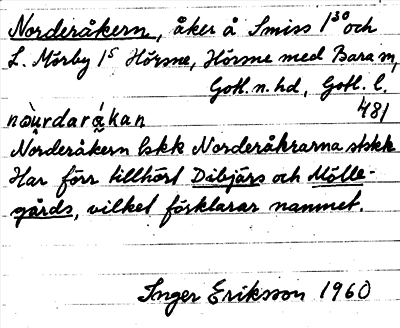 Norderåkern, åker å Smiss 1³⁰ och
L. Mörby 1⁵ Hörsne, Hörsne med Bara sn,
Gotl. n. hd, Gotl. l.
481
nòu̯rdarákan
Norderåkern bskk Norderåkrarna stskk
Har förr tillhört Dibjärs och Mölle-
gårds, vilket förklarar namnet.
Inger Eriksson 1960